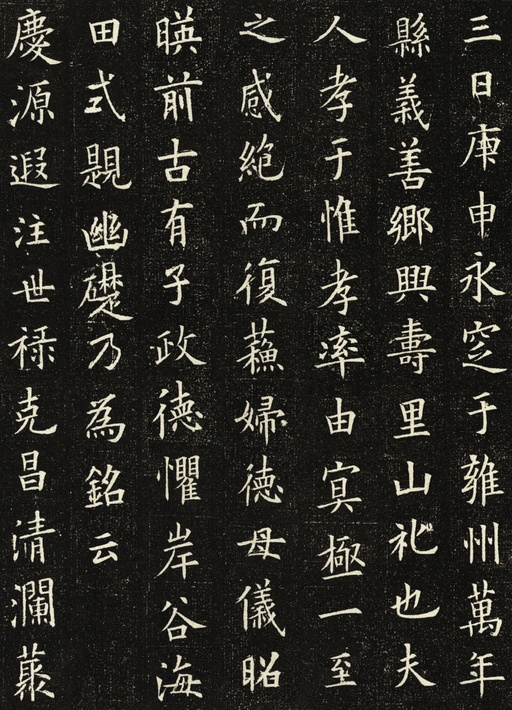 三日庚申永窆于雍州萬年
縣義善鄉興壽里山礼也夫
人孝于惟孝率由冥極一至
之感絕而復蘓婦德母儀昭
暎前古有子政德懼岸谷海
田式題幽礎乃為銘云
慶源遐注世祿克昌清瀾